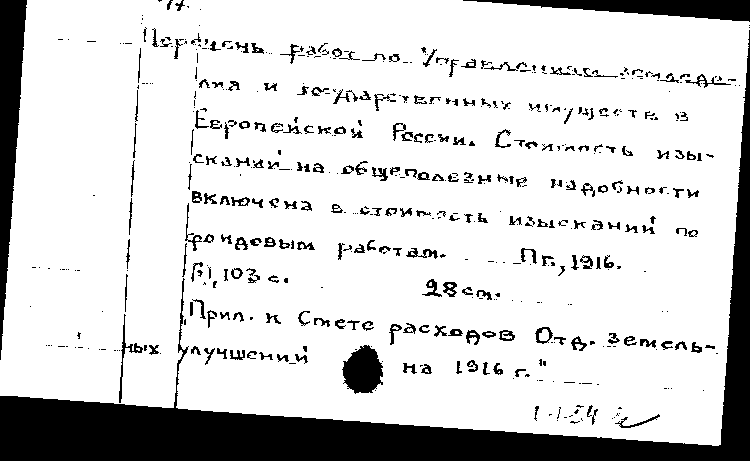 Перечень работ по Управлениям земледе-
лия и государственных имуществ в
Европейской России. Стоимость изы-
сканий на общеполезные надобности
включена в стоимость изысканий по
фондовым работам. Пг., 1916.
103 с. 28 см.
"Прил. к Смете расходов Отд. земель-
ных улучшений на 1916 г."